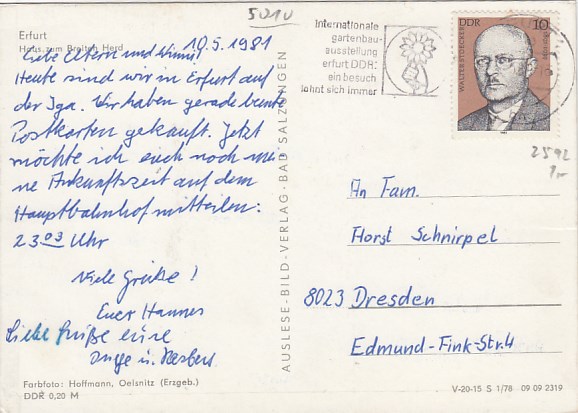 5010
Erfurt
Haus zum Breiten Herd
10.5.1981
Liebe Eltern und
Heute sind wir in Erfurt auf
der Iga. Wir haben gerade bunte
Postkarten gekauft. Jetzt
möchte ich euch noch mei-
ne Ankunftszeit auf dem
Hauptbahnhof mitteilen:
23 03 Uhr
Viele Grüße!
Euer Hannes
Liebe Grüße eure
Inge u. Herbert
Farbfoto: Hoffmann, Oelsnitz (Erzgeb.)
DDR 0,20 M
AUSLESE-BILD-VERLAG · BAD SALZUNGEN
Internationale
gartenbau-
ausstellung
erfurt DDR:
ein besuch
lohnt sich immer
DDR 10
WALTER STOECKER
2592
An Fam.
Horst Schnirpel
8023 Dresden
Edmund-Fink-Str. 4
V-20-15 S 1/78 09 09 2319